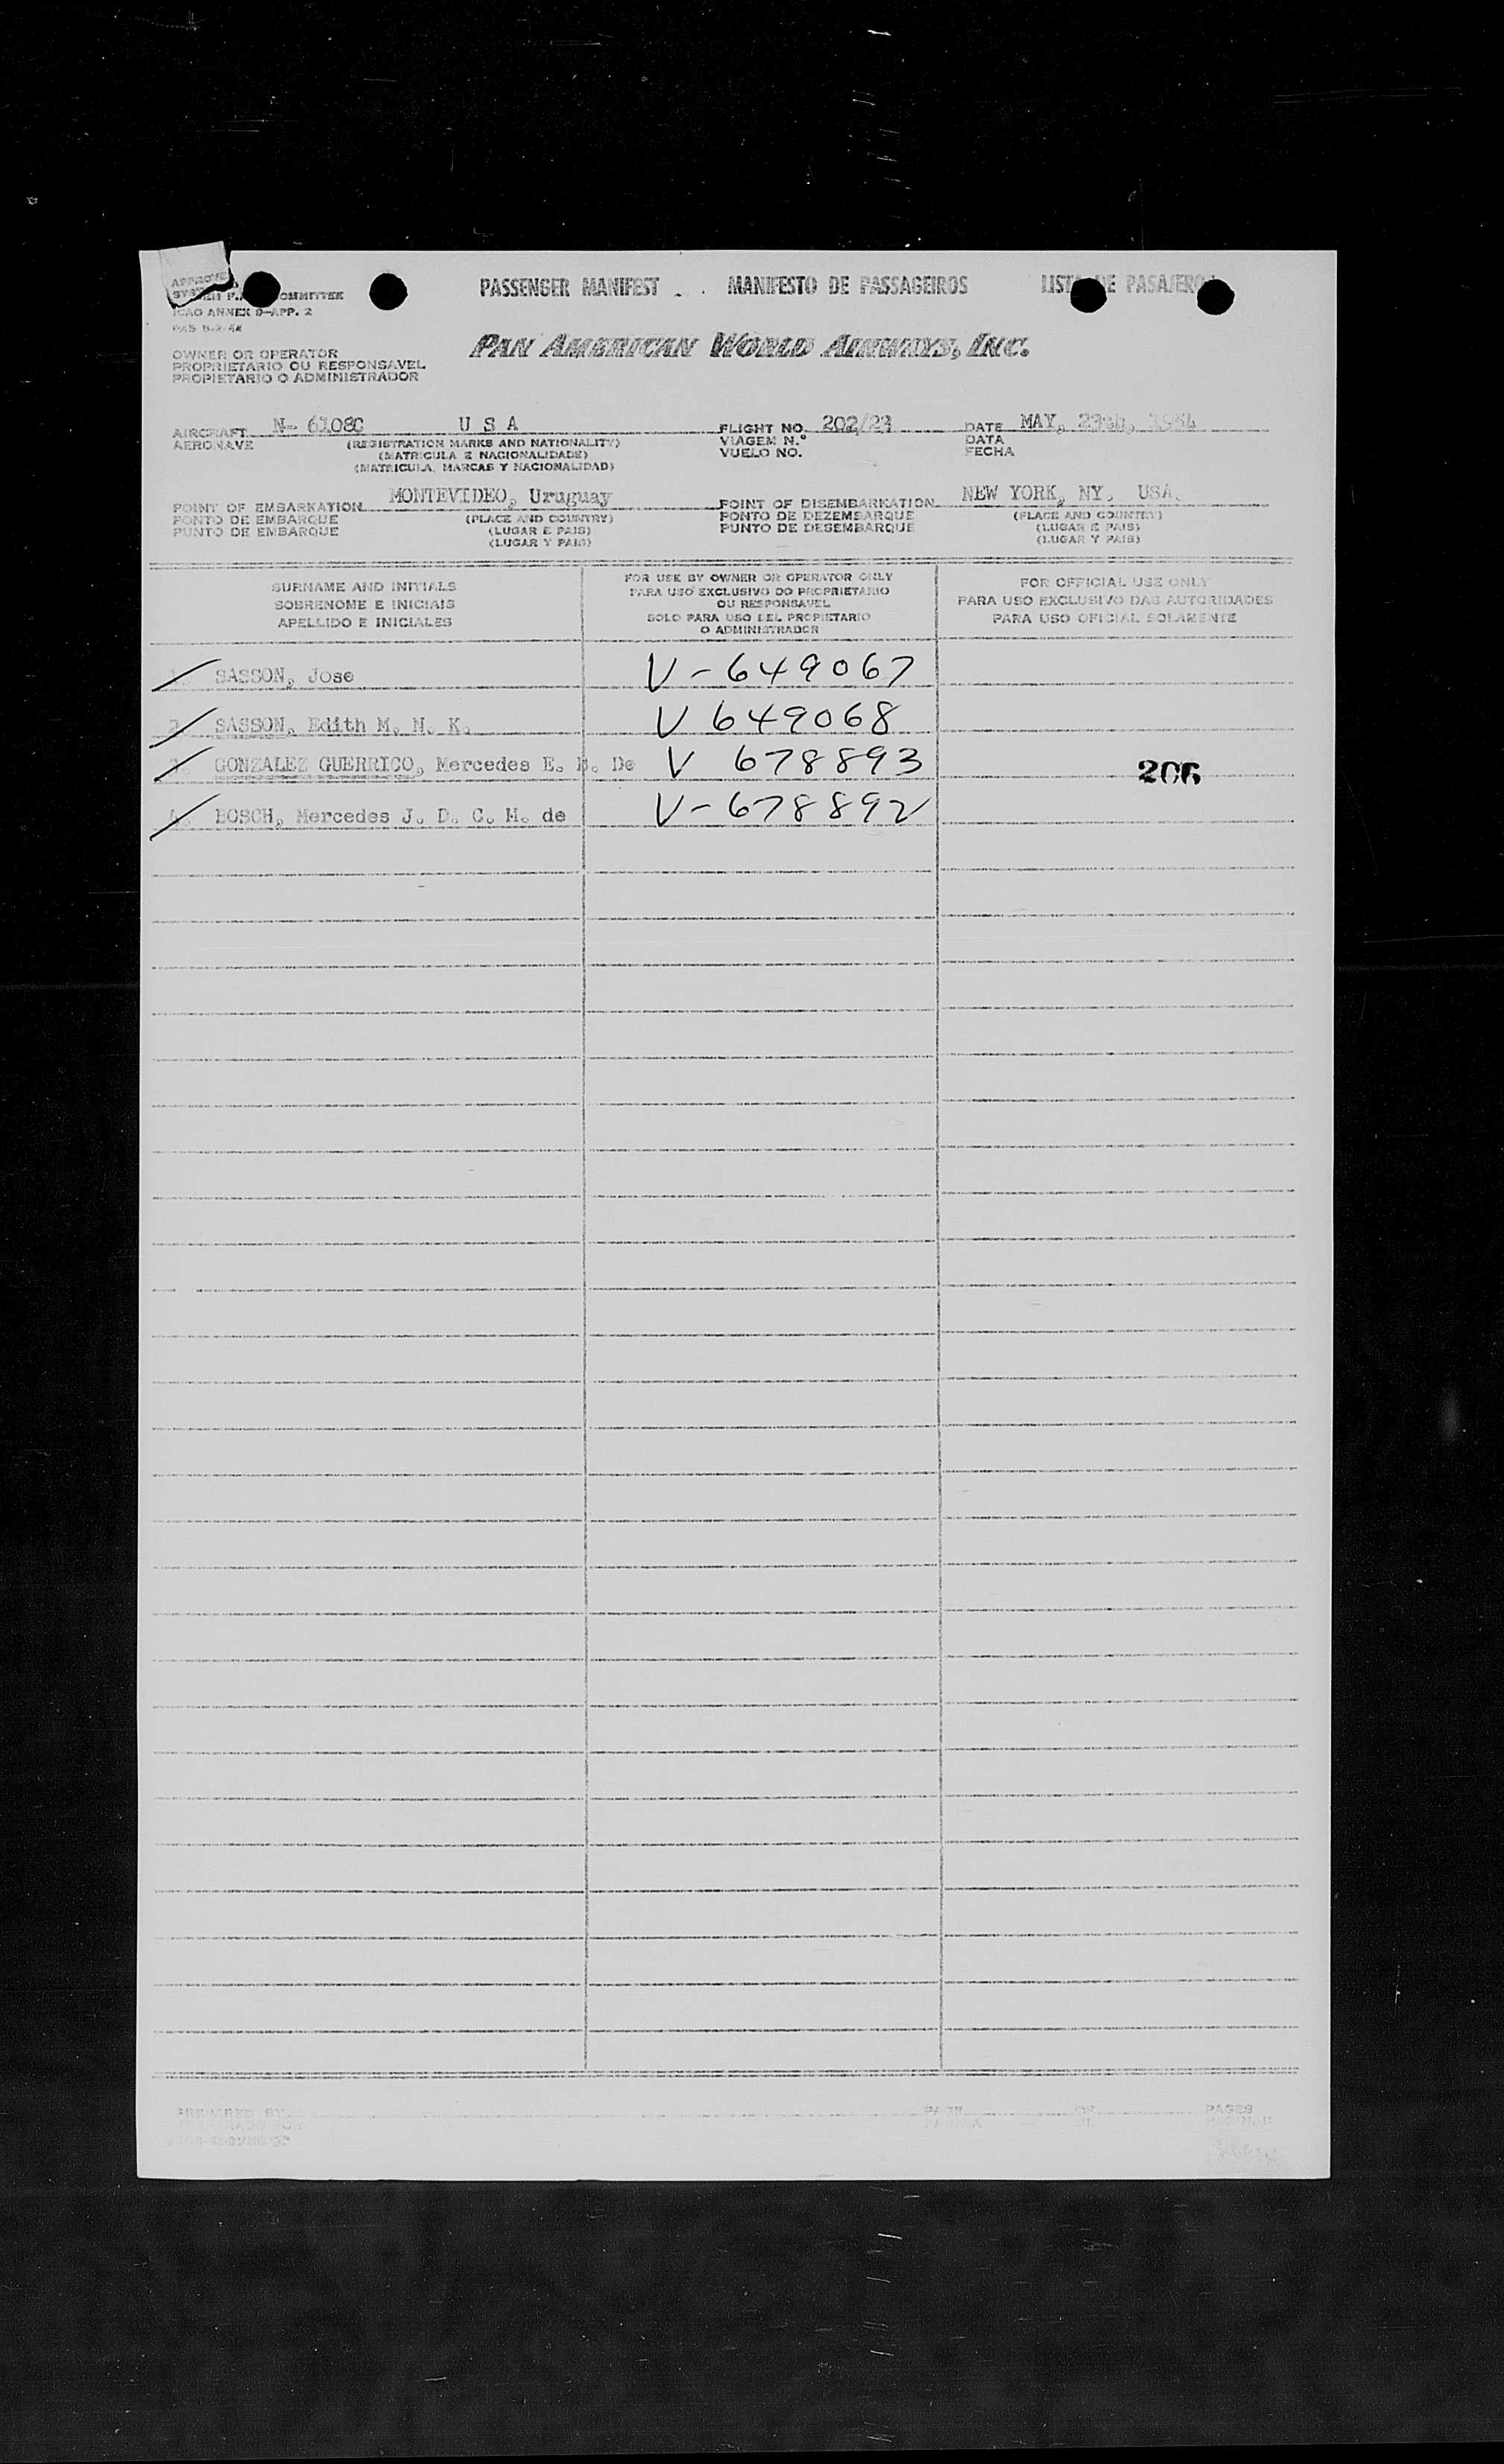 PASSENGER MANIFEST . . MANIFESTO DE PASSAGEIROS LISTA DE PASAJEROS
APPROVED
COMMITTEE
ICAO ANNEX 9-APP. 2
PAN AMERICAN WORLD AIRWAYS, INC.
OWNER OR OPERATOR
PROPRIETARIO OU RESPONSAVEL
PROPIETARIO O ADMINISTRADOR
AIRCRAFT N- 6108C U S A FLIGHT NO. 202/23 DATE MAY, 1954
AERONAVE (REGISTRATION MARKS AND NATIONALITY) VIAGEM N.º DATA
(MATRICULA E NACIONALIDADE) VUELO NO. FECHA
(MATRICULA, MARCAS Y NACIONALIDAD)
POINT OF EMBARKATION MONTEVIDEO, Uruguay POINT OF DISEMBARKATION NEW YORK, NY, USA.
PONTO DE EMBARQUE (PLACE AND COUNTRY) PONTO DE DEZEMBARQUE (PLACE AND COUNTRY)
PUNTO DE EMBARQUE (LUGAR E PAIS) PUNTO DE DESEMBARQUE (LUGAR E PAIS)
(LUGAR Y PAIS) (LUGAR Y PAIS)
SURNAME AND INITIALS
SOBRENOME E INICIAIS
APELLIDO E INICIALES
FOR USE BY OWNER OR OPERATOR ONLY
PARA USO EXCLUSIVO DO PROPRIETARIO
OU RESPONSAVEL
SOLO PARA USO DEL PROPIETARIO
O ADMINISTRADOR
FOR OFFICIAL USE ONLY
PARA USO EXCLUSIVO DAS AUTORIDADES
PARA USO OFICIAL SOLAMENTE
SASSON, Jose V-649067
SASSON, Edith M. N. K. V 649068
GONZALEZ GUERRICO, Mercedes E. B. De V 678893 206
BOSCH, Mercedes J. D. C. M. de V-678892
PREPARED BY PAGE OF PAGES